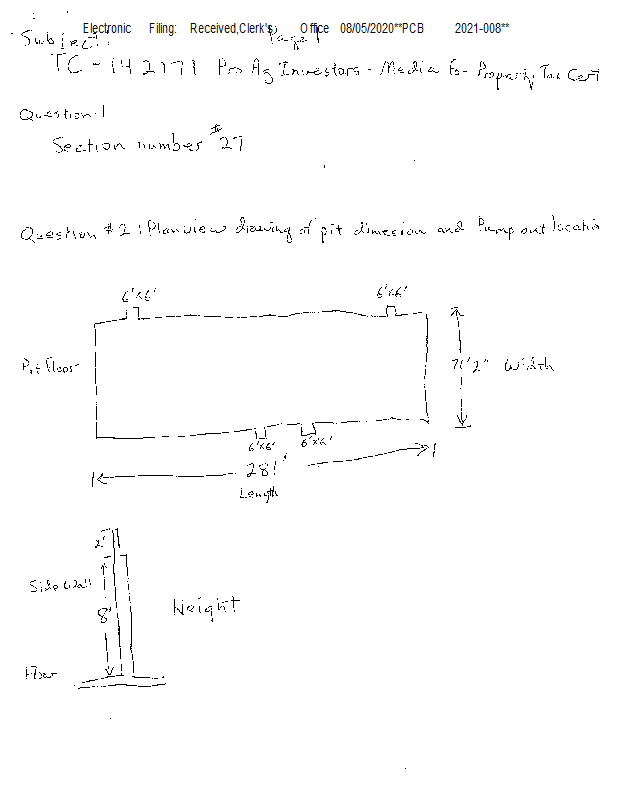 Electronic Filing: Received, Clerk's Office 08/05/2020**PCB 2021-008**
Subject: Page 1
TC-142171 Pro Ag Investors - Media For Property Tax Cert
Question: 1
Section number #27
Question #2: Planview drawing of pit dimesion and Pump out locatio
6'x6' 6'x6'
Pit floor
71'2" Width
6'x6' 6'x6'
281'
Length
2'
Side Wall
8'
Height
Floor